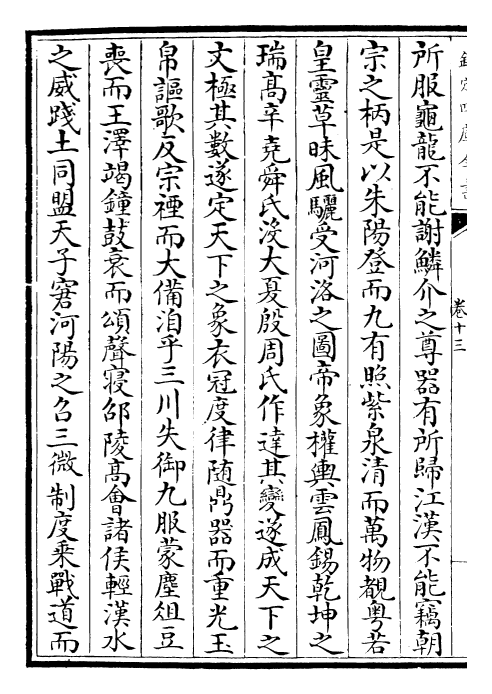 欽定四庫全書
卷十三
所服龜龍不能謝鱗介之尊器有所歸江漢不能竊朝
宗之柄是以朱陽登而九有照紫泉清而萬物覩粤若
皇靈草昧風驪受河洛之圖帝象權輿雲鳳錫乾坤之
瑞高辛堯舜氏沒大夏殷周氏作達其變遂成天下之
文極其數遂定天下之象衣冠度律随鼎器而重光玉
帛謳歌反宗禋而大備洎乎三川失御九服蒙塵俎豆
喪而王澤竭鐘鼓衰而頌聲寝邵陵高會諸侯輕漢水
之威踐土同盟天子窘河陽之召三微制度乘戰道而